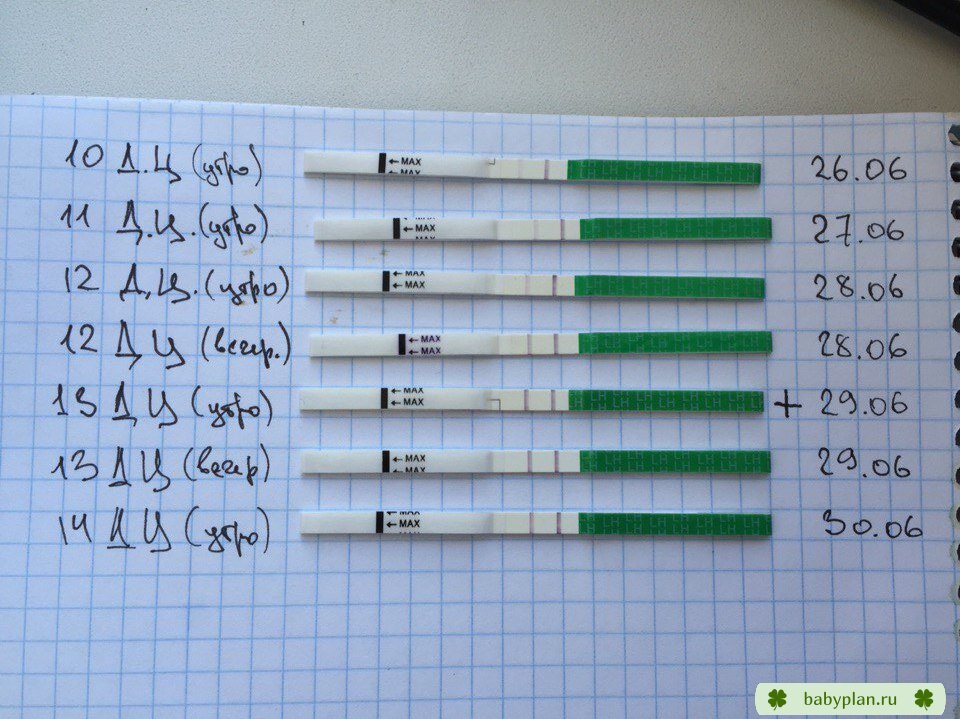 10 Д.Ц (утро) ← MAX ← MAX 26.06
11 Д.Ц. (утро) ← MAX ← MAX MAX 27.06
12 Д.Ц. (утро) ← MAX ← MAX 28.06
12 Д Ц (вечер.) ← MAX ← MAX 28.06
13 Д Ц (утро) ← MAX ← MAX + 29.06
13 Д Ц (вечер) ← MAX ← MAX 29.06
14 Д Ц (утро) ← MAX ← MAX MAX 30.06
babyplan.ru